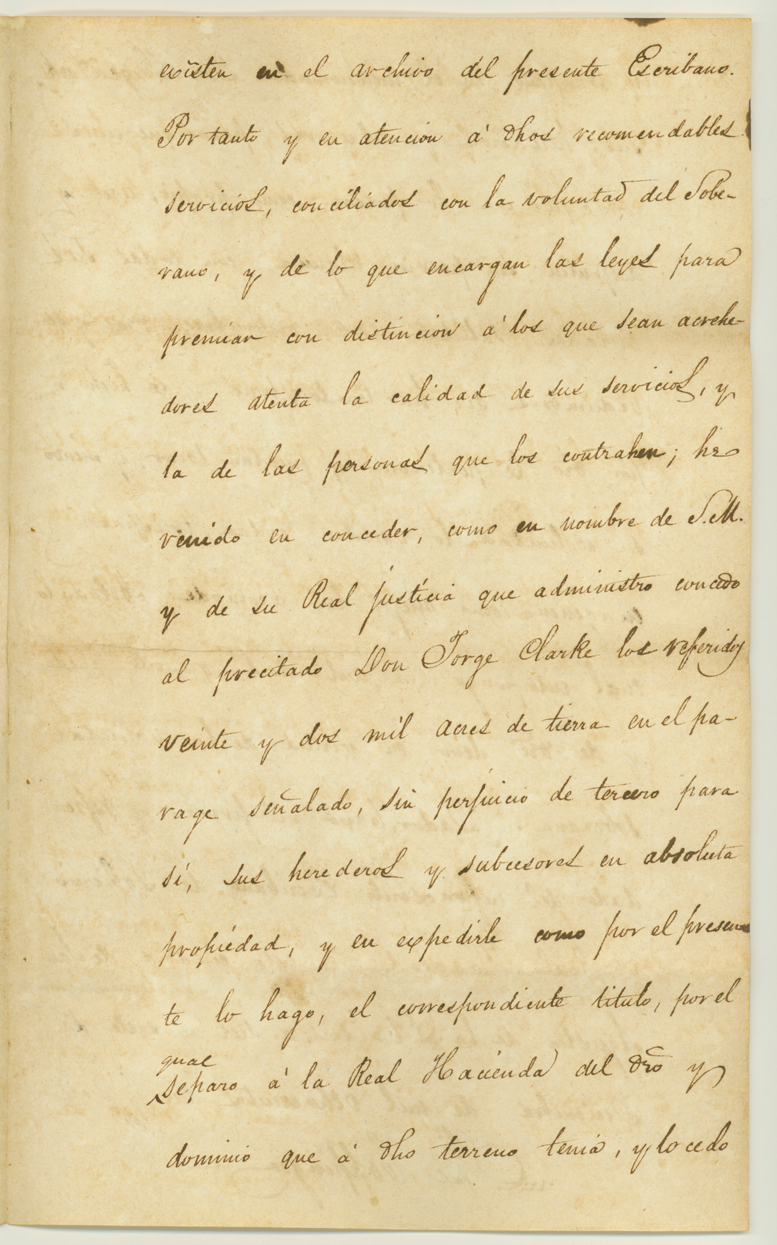 existen en el archivo del presente Escribano.
Por tanto y en atencion á dhos recomendables
servicios, conciliados con la voluntad del Sobe-
rano, y de lo que encargan las leyes para
premiar con distincion á los que sean acrehe-
dores atenta la calidad de sus servicios, y
la de las personas que los contrahen; he
venido en conceder, como en nombre de S.M.
y de su Real justicia que administro concedo
al precitado Don Jorge Clarke los referidos
veinte y dos mil acres de tierra en el pa-
rage señalado, sin perjuicio de tercero para
sí, sus herederos y subcesores en absoluta
propiedad, y en expedirle como por el presen-
te lo hago, el correspondiente titulo, por el
qual
separo á la Real Hacienda del dro y
dominio que á dho terreno tenia, y lo cedo